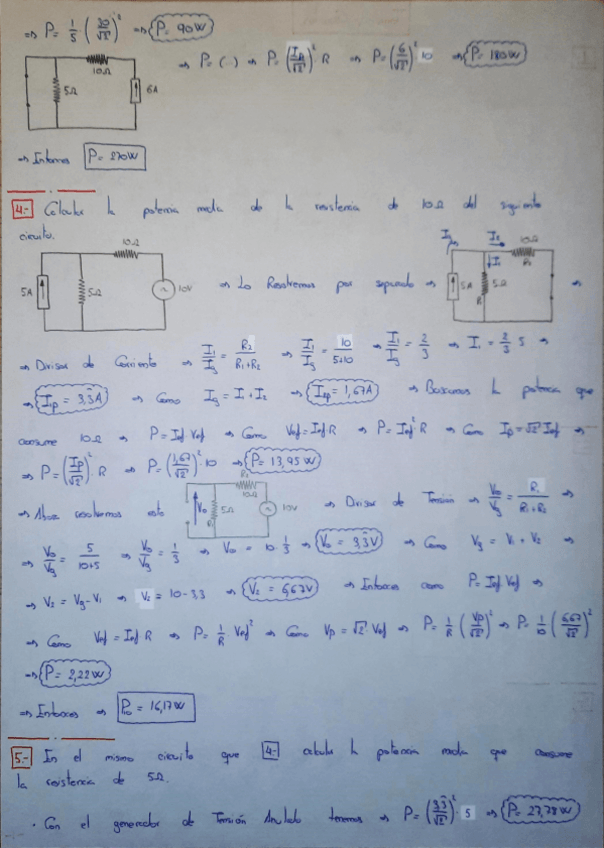 ⇒ P = 1/5 (30/√2)² ⇒ P = 90W
⇒ P = (..) ⇒ P = (Ip/√2)² · R ⇒ P = (6/√2)² · 10 ⇒ P = 180W
10Ω
5Ω
6A
⇒ Entonces P = 270W
4.- Calcular la potencia media de la resistencia de 10Ω del siguiente
circuito.
10Ω
5A
5Ω
10V
⇒ Lo Resolvemos por separado ⇒
Ig
I2
10Ω
R2
I1
5A
5Ω
R1
⇒
⇒ Divisor de Corriente ⇒ I1/Ig = R2/(R1+R2) ⇒ I1/Ig = 10/(5+10) ⇒ I1/Ig = 2/3 ⇒ I1 = 2/3 · 5 ⇒
⇒ I1p = 3,3A ⇒ Como Ig = I1 + I2 ⇒ I2p = 1,67A ⇒ Buscamos la potencia que
consume 10Ω ⇒ P = Ief · Vef ⇒ Como Vef = Ief · R ⇒ P = Ief² · R ⇒ Como Ip = √2 · Ief ⇒
⇒ P = (Ip/√2)² · R ⇒ P = (1,67/√2)² · 10 ⇒ P = 13,95W
⇒ Ahora resolvemos esto
R2
10Ω
V0
5Ω
R1
10V
⇒ Divisor de Tensión ⇒ V0/Vg = R1/(R1+R2) ⇒
⇒ V0/Vg = 5/(10+5) ⇒ V0/Vg = 1/3 ⇒ V0 = 10 · 1/3 ⇒ V0 = 3,3V ⇒ Como Vg = V1 + V2 ⇒
⇒ V2 = Vg - V1 ⇒ V2 = 10 - 3,3 ⇒ V2 = 6,67V ⇒ Entonces como P = Ief · Vef ⇒
⇒ Como Vef = Ief · R ⇒ P = 1/R · Vef² ⇒ Como Vp = √2 · Vef ⇒ P = 1/R (Vp/√2)² ⇒ P = 1/10 (6,67/√2)²
⇒ P = 2,22W
⇒ Entonces ⇒ P10 = 16,17W
5.- En el mismo circuito que 4- calcula la potencia media que consume
la resistencia de 5Ω.
· Con el generador de Tensión Anulado tenemos ⇒ P = (3,3/√2)² · 5 ⇒ P = 27,78W